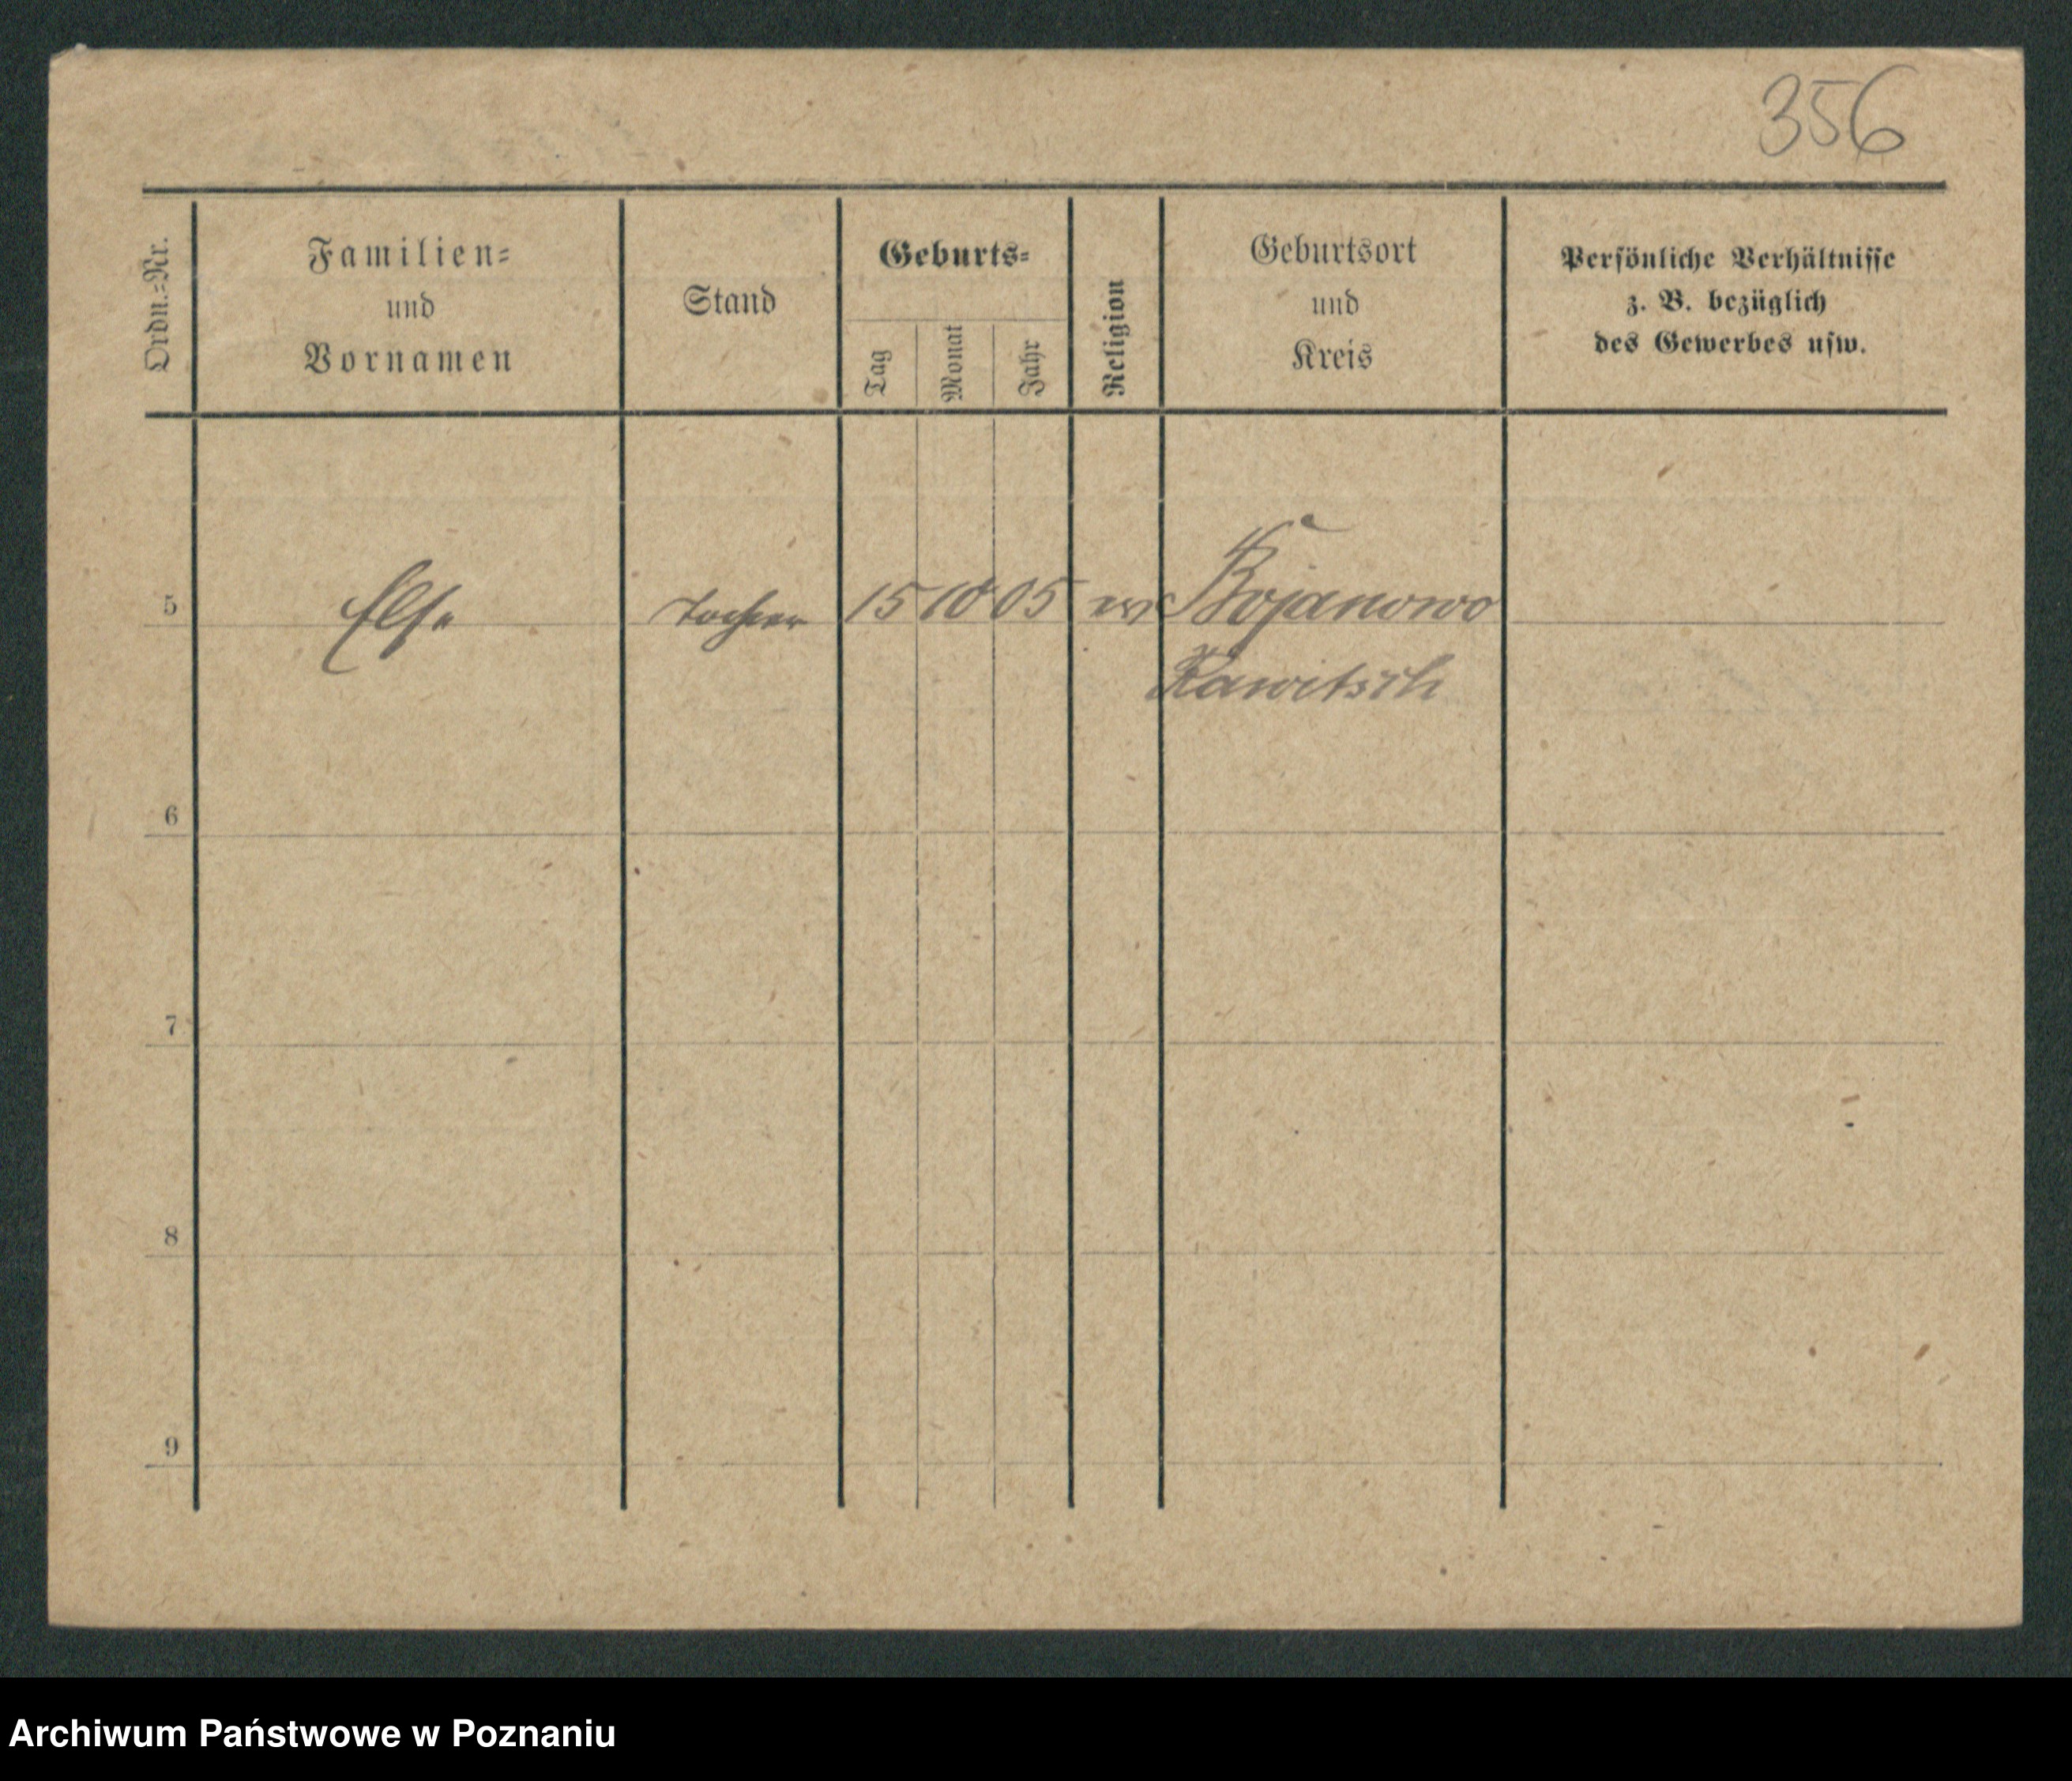 356
Ordn.-Nr.
Familien-
und
Vornamen
Stand
Geburts-
Tag
Monat
Jahr
Religion
Geburtsort
und
Kreis
Persönliche Verhältnisse
z. B. bezüglich
des Gewerbes usw.
5 Else Tochter 15 10 05 ev Bojanowo
Rawitsch
6
7
8
9
Archiwum Państwowe w Poznaniu